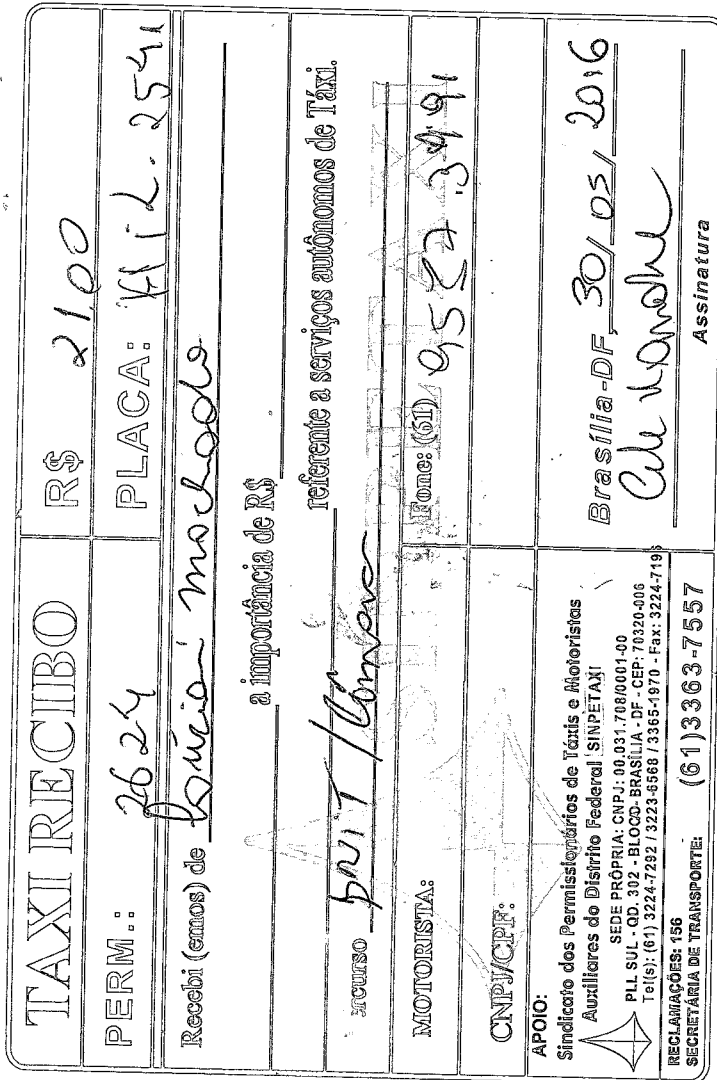 TAXI RECIBO
R$ 21,00
PERM.: 2624
PLACA: 2541
Recebi (emos) de Machado
a importância de R$
referente a serviços autônomos de Táxi.
ercurso DNIT / Câmara
MOTORISTA:
Fone: (61)
CNPJ/CPF:
Brasília-DF, 30/05/2016
Assinatura
APOIO:
Sindicato dos Permissionários de Táxis e Motoristas
Auxiliares do Distrito Federal SINPETAXI
SEDE PRÓPRIA: CNPJ: 00.031.708/0001-00
PLL SUL - QD. 302 - BLOCO- BRASÍLIA - DF - CEP: 70320-006
Tel(s): (61) 3224-7292 / 3223-6568 / 3365-1970 - Fax: 3224-7196
RECLAMAÇÕES: 156
SECRETÁRIA DE TRANSPORTE: (61)3363-7557